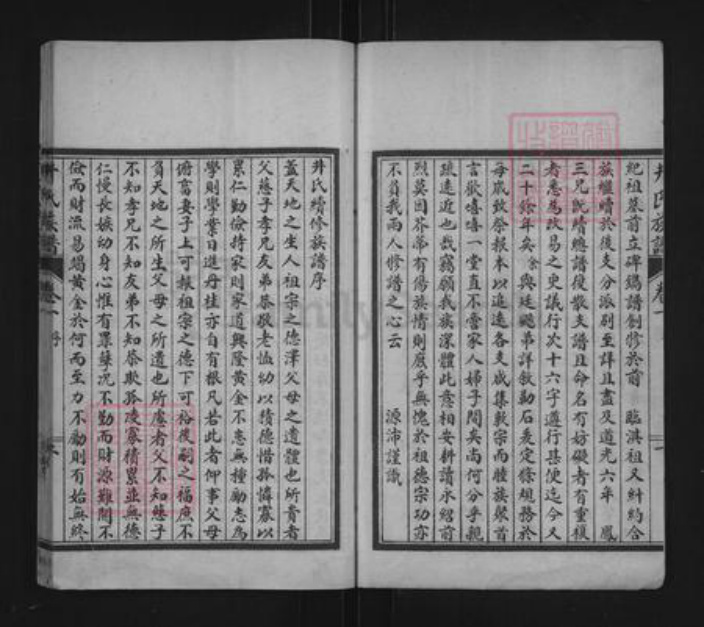 井氏族譜 卷一
紀祖塋前立碑鐫譜創修於前 臨淇祖又糾約合
族繼續於後支分派別至詳且盡及道光六年 鳳
三兄既續總譜後散支譜且命名有妨礙者有重複
者悉為改易之更議行次十六字遵行甚便迄今又
二十餘年矣余與廷颺弟詳敘勒石爰定條規務於
每歲致祭報本以追遠各支咸集敦宗而睦族襲首
言歡嘻嘻一堂直不啻家人婦子間矣尚何分乎親
疏遠近也哉竊願我族深體此意相安耕讀永紹前
烈莫因芥蒂有傷族情則庶乎無愧於祖德宗功亦
不負我兩人修譜之心云
源沛謹識
井氏續修族譜序
蓋天地之生人祖宗之德澤父母之遺體也所貴者
父慈子孝兄友弟恭敬老恤幼以積德惜孤憐寡以
累仁勤儉持家則家道興隆黃金不患無種勵志為
學則學業日進丹桂亦自有根凡若此者仰事父母
俯畜妻子上可報祖宗之德下可裕後嗣之福庶不
負天地之所生父母之所遺也所慮者父不知慈子
不知孝兄不知友弟不知恭欺孤凌寡積累並無德
仁慢長嫉幼身心惟有罪孽況不勤而財源難開不
儉而財流易竭黃金於何而至力不勵則有始無終
井氏族譜 卷一 序